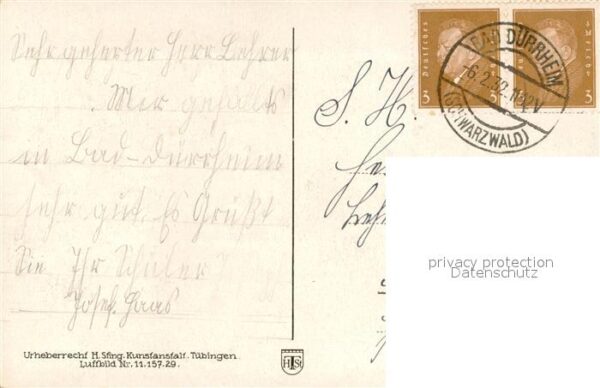 Sehr geherter Herr Lehrer
Mer gefällts
in Bad-Dürrheim
sehr gut. Es Grüßt
Sie Ihr Schüler
Josef Haas
Urheberrecht H. Sting. Kunstanstalt. Tübingen.
Luftbild Nr. 11.157.29.
HSt
S. H.
Deutsches Reich
3 3
Deutsches Reich
3 3
BAD DÜRRHEIM
-6.2.32.
(SCHWARZWALD)
privacy protection
Datenschutz